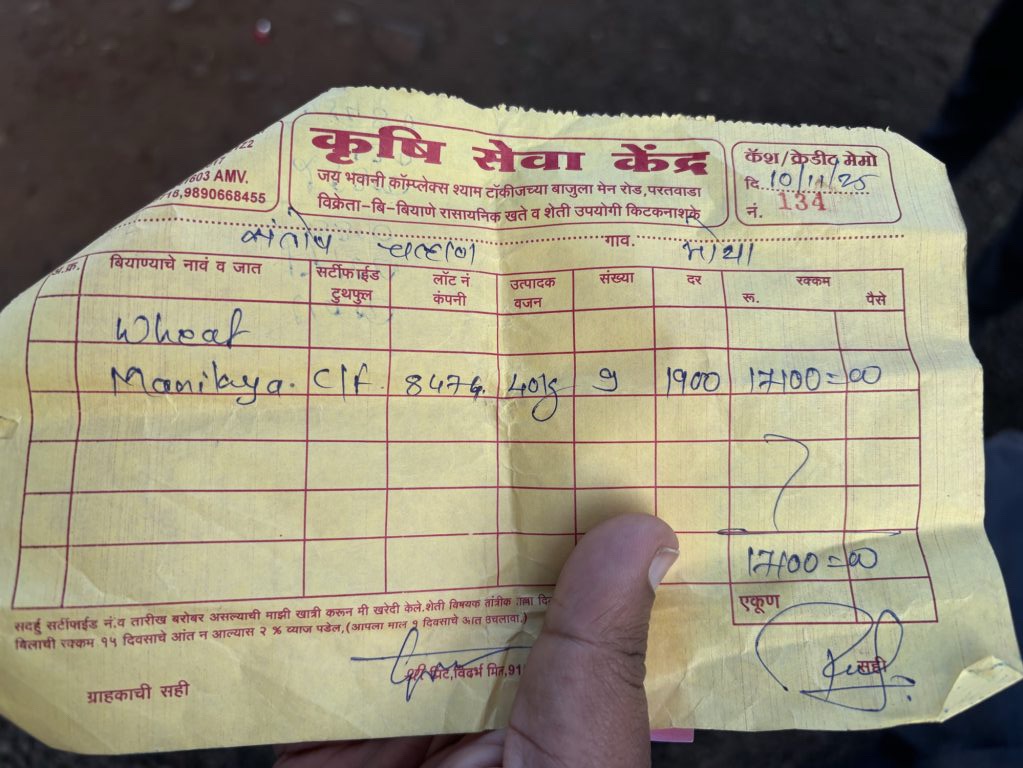 603 AMV.
9890668455
कृषि सेवा केंद्र
जय भवानी कॉम्प्लेक्स श्याम टॉकीजच्या बाजुला मेन रोड,परतवाडा
विक्रेता-बि-बियाणे रासायनिक खते व शेती उपयोगी किटकनाशके
कॅश/क्रेडीट मेमो
दि. 10/11/25
नं. 134
संतोष चव्हाण गाव.
अ.क्र. बियाण्याचे नावं व जात सर्टीफाईड टुथफुल लॉट नं कंपनी उत्पादक वजन संख्या दर रक्कम रू. पैसे
Wheat
C/f. 40kg 9 1900 17100=00
17100=00
एकूण
सदर्हु सर्टीफाईड नं.व तारीख बरोबर असल्याची माझी खात्री करून मी खरेदी केले.शेती विषयक तांत्रीक
बिलाची रक्कम १५ दिवसाचे आंत न आल्यास २ % व्याज पडेल,(आपला माल १ दिवसाचे आत उचलावा.)
ग्राहकाची सही
विदर्भ मिल,91
सही